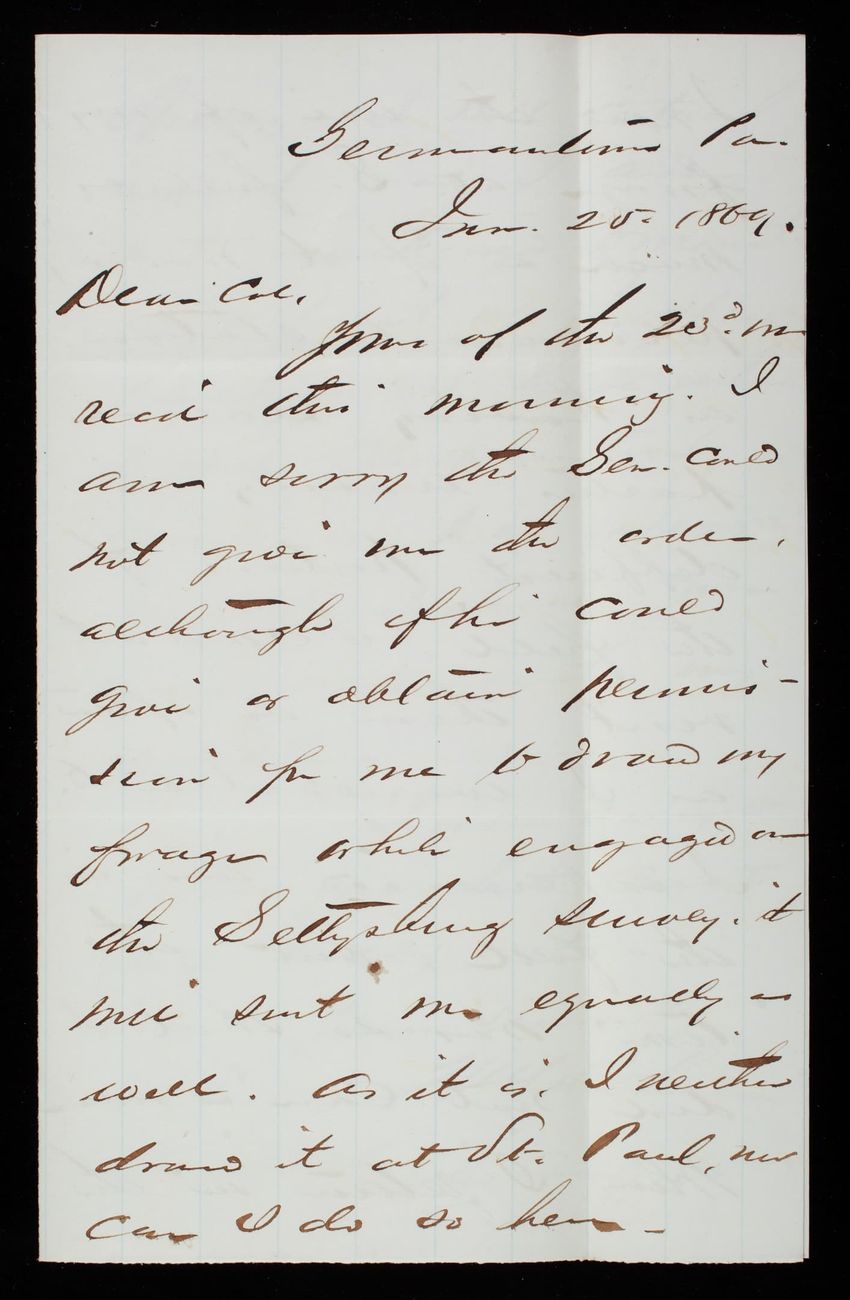 Germantown Pa.
Jan. 25. 1869.
Dear Col.
Yours of the 23d. was
recd this morning. I
am sorry the Gen. could
not give me the order,
although if he could
give or obtain permis-
sion for me to draw my
forage while engaged on
the Gettysburg survey. it
will suit me equally as
well. As it is, I neither
draw it at St. Paul, nor
can I do so here -